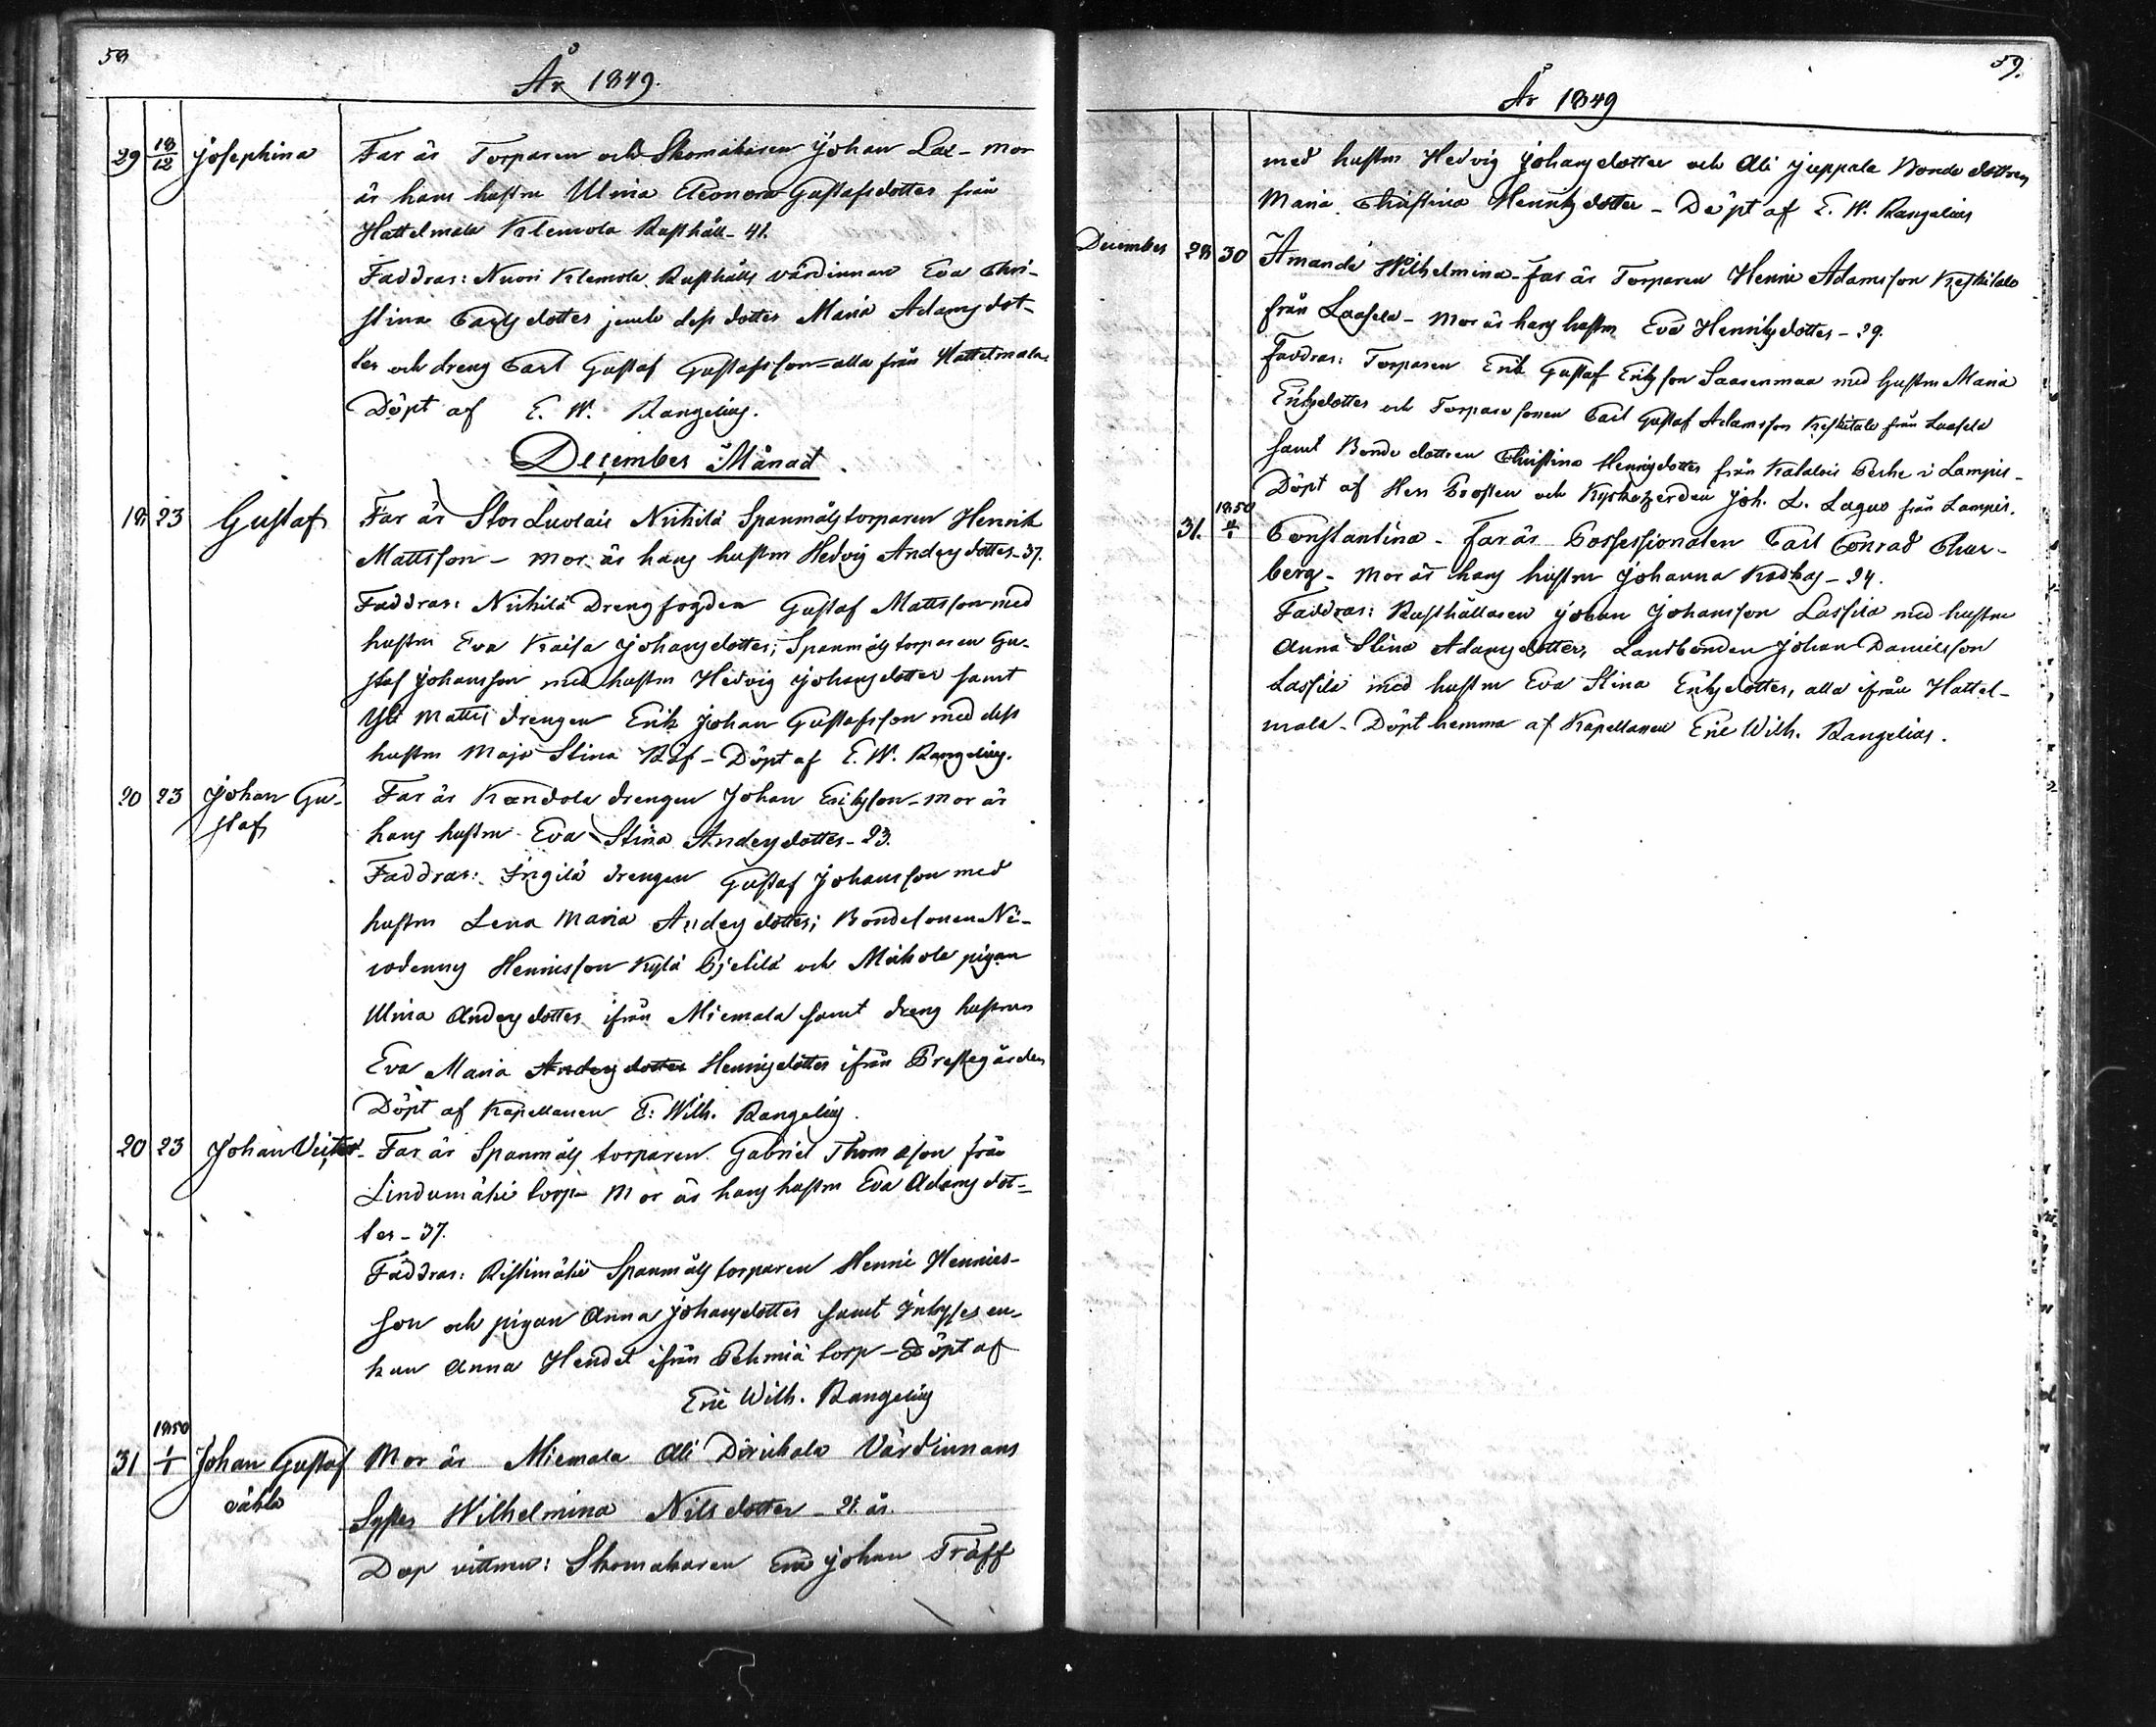 58
År 1849.
29 18/12 Josephina Far är Torparen och Skomakaren Johan Lax - mor
är hans hustru Ulrica Eleonora Gustafsdotter från
Hattelmala Klemola Rusthåll - 41.
Faddrar: Nuori Klemola Rusthålls värdinnan Eva Chri-
stina Carlsdotter jemte dess dotter Maria Adamsdot-
ter och dreng Carl Gustaf Gustafsson - alla från Hattelmala.
Döpt af E. W. Rangelius.
December Månad.
18 23 Gustaf Far är Stor Luolais Nichilä Spanmålstorparen Henrik
Mattsson - mor är hans hustru Hedvig Andersdotter - 37.
Faddrar: Nichilä Drengfogden Gustaf Mattsson med
hustru Eva Kaisa Johansdotter; Spanmålstorparen Gu-
staf Johansson med hustru Hedvig Johansdotter samt
Yli Mattis drengen Erik Johan Gustafsson med dess
hustru Maja Stina - Döpt af E. W. Rangelius.
20 23 Johan Gu- Far är Kandola drengen Johan Ericksson - mor är
staf hans hustru Eva Stina Andersdotter - 23.
Faddrar: drengen Gustaf Johansson med
hustru Lena Maria Andersdotter; Bondesonen Ni-
codemus Henricsson Kylä Pjelilä och pigan
Ulrica Andersdotter ifrån Miemala samt dreng hustrun
Eva Maria Andersdotter Henricsdotter ifrån Prestegården
Döpt af Kapellanen E: Wilh. Rangelius.
20 23 Johan Victor - Far är Spanmåls torparen Gabriel Thomasson från
Lindumäki torp - Mor är hans hustru Eva Adamsdot-
ter - 37.
Faddrar: Ristimäki Spanmåls torparen Henric Henrics-
son och pigan Anna Johansdotter samt Inhyses en-
kan Anna Hendel ifrån torp - Döpt af
Eric Wilh. Rangelius
1850
31 1/1 Johan Gustaf Mor är Miemala Ali Värdinnans
oäkta Syster Wilhelmina Nilsdotter - 21. år.
Dop vittnen: Skomakaren Johan Träff
59.
År 1849
med hustru Hedvig Johansdotter och Ali Juppala Bonde dottren
Maria Christina Henricsdotter - Döpt af E. W. Rangelius
December 28 30 Amanda Wilhelmina - Far är Torparen Henric Adamsson Keskitalo
från Laasela - Mor är hans hustru Eva Henricsdotter - 29.
Faddrar: Torparen Erik Gustaf Ericksson Saarenmaa med hustru Maria
Ericksdotter och Torpare sonen Carl Gustaf Adamsson Keskitalo från Laasela
samt Bonde dottren Christina Henricsdotter från i Lampis -
Döpt af Herr Prosten och Kyrkoherden Joh. L. Lagus från Lampis.
1850
31. 4/1 Constantina - Far är Possessionaten Carl Conrad Thur-
berg - Mor är hans hustru Johanna - 24.
Faddrar: Rusthållaren Johan Johansson Lassila med hustru
Anna Stina Adamsdotter, Landbonden Johan Danielsson
Lassila med hustru Eva Stina Ericksdotter, alla ifrån Hattel-
mala - Döpt hemma af Kapellanen Eric Wilh. Rangelius.